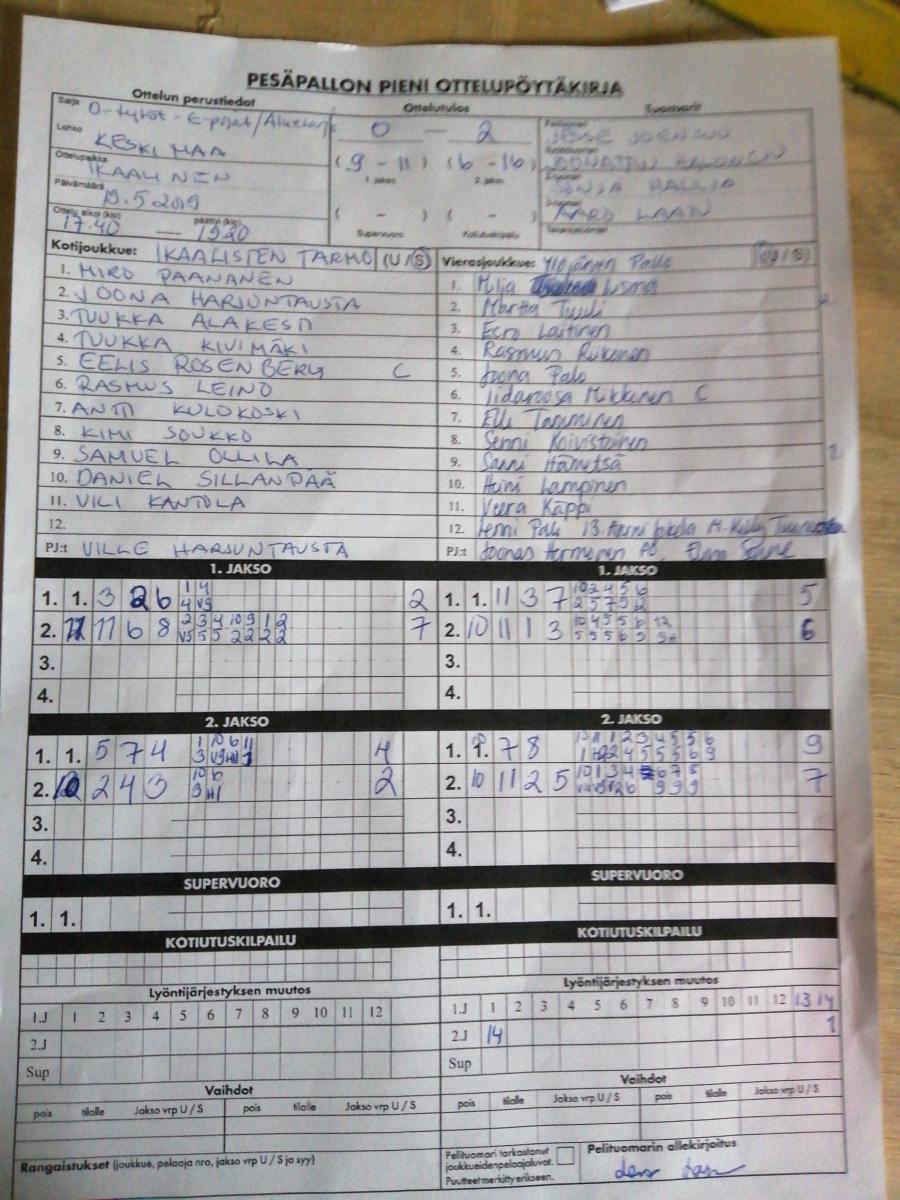 PESÄPALLON PIENI OTTELUPÖYTÄKIRJA
Ottelun perustiedot
Ottelutulos
Suomarit
Sarja
D-tytöt - E-pojat/
Lohko
KESKI MAA
Ottelupaikka
IKAALINEN
Päivämäärä
19.5 2019
Ottelu alkoi (klo)
päättyi (klo)
17.40 — 1920
0 - 2
( 9 - 11 ) ( 6 - 16 )
1. jakso
2. jakso
( - ) ( - )
Supervuoro
Kotiutuskilpailu
JESSE JOENSUU
SONJA HALLIA
AARO LAAN
Kotijoukkue: IKAALISTEN TARMO (U / S)
1. MIRO PAANANEN
2. JOONA HARJUNTAUSTA
3. TUUKKA ALAKESTI
4. TUUKKA KIVIMÄKI
5. EELIS ROSENBERG C
6. RASMUS LEINO
7. ANTTI KULOKOSKI
8. KIMI SOUKKO
9. SAMUEL OLLILA
10. DANIEL SILLANPÄÄ
11. VILI KANTOLA
12.
PJ:t VILLE HARJUNTAUSTA
Vierasjoukkue: Ylöjärven Pallo (U / S)
1. Milja Usma
2. Martta Tuuli
3. Eero Laitinen
4. Rasmus
5. Joona Palo
6. Iidaroosa Mikkonen C
7. Elli Tamminen
8. Senni Koivistoinen
9. Sanni Hämetsä
10. Heini Lampinen
11. Veera Käppi
12. Jenni Palo 13.
PJ:t Joonas
1. JAKSO
1. 1. 3 2 6 1 4 2
4 V9
2. 11 11 6 8 2 3 4 10 9 1 2 7
V5 5 5 2 2 2 2
3.
4.
1. JAKSO
1. 1. 11 3 7 10 2 4 5 6 5
2 5 7 9 2
2. 10 11 1 3 10 4 5 5 6 12 6
5 5 5 6 9
3.
4.
2. JAKSO
1. 1. 5 7 4 1 10 6 11 4
2. 10 2 4 3 10 6 2
3.
4.
2. JAKSO
1. 1. 7 8 10 11 1 2 3 4 5 5 6 9
2. 10 11 2 5 10 1 3 4 6 7 8 7
3.
4.
SUPERVUORO
1. 1.
SUPERVUORO
1. 1.
KOTIUTUSKILPAILU
KOTIUTUSKILPAILU
Lyöntijärjestyksen muutos
1.J 1 2 3 4 5 6 7 8 9 10 11 12
2.J
Sup
Lyöntijärjestyksen muutos
1.J 1 2 3 4 5 6 7 8 9 10 11 12 13 14
2.J 14 1
Sup
Vaihdot
pois tilalle Jakso vrp U / S pois tilalle Jakso vrp U / S
Vaihdot
pois tilalle Jakso vrp U / S pois tilalle Jakso vrp U / S
Rangaistukset (joukkue, pelaaja nro, jakso vrp U / S ja syy)
Pelituomari tarkastanut
joukkueiden pelaajaluvat.
Puutteet merkitty erikseen.
Pelituomarin allekirjoitus